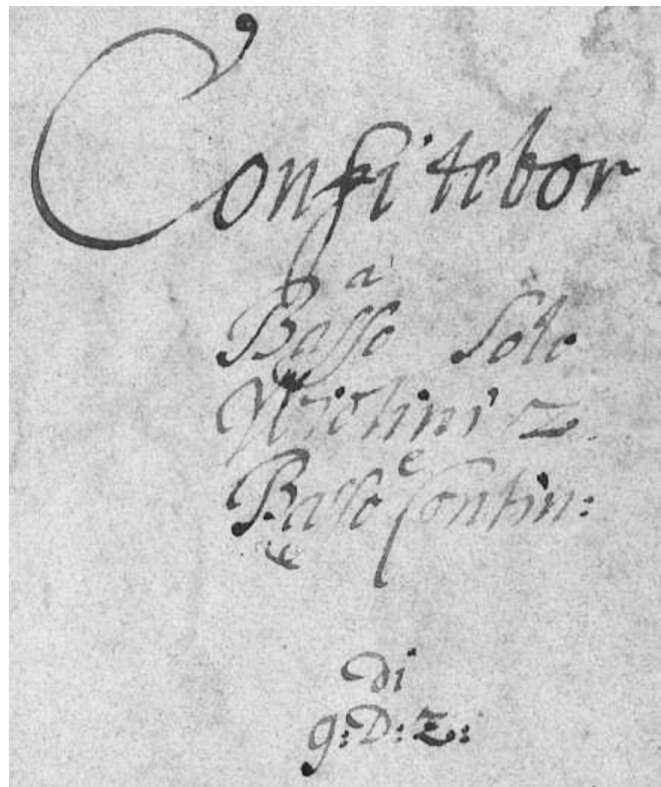 Confitebor
a
Basso Solo
Violini 2
e
Basso Contin:
di
G: D: Z: